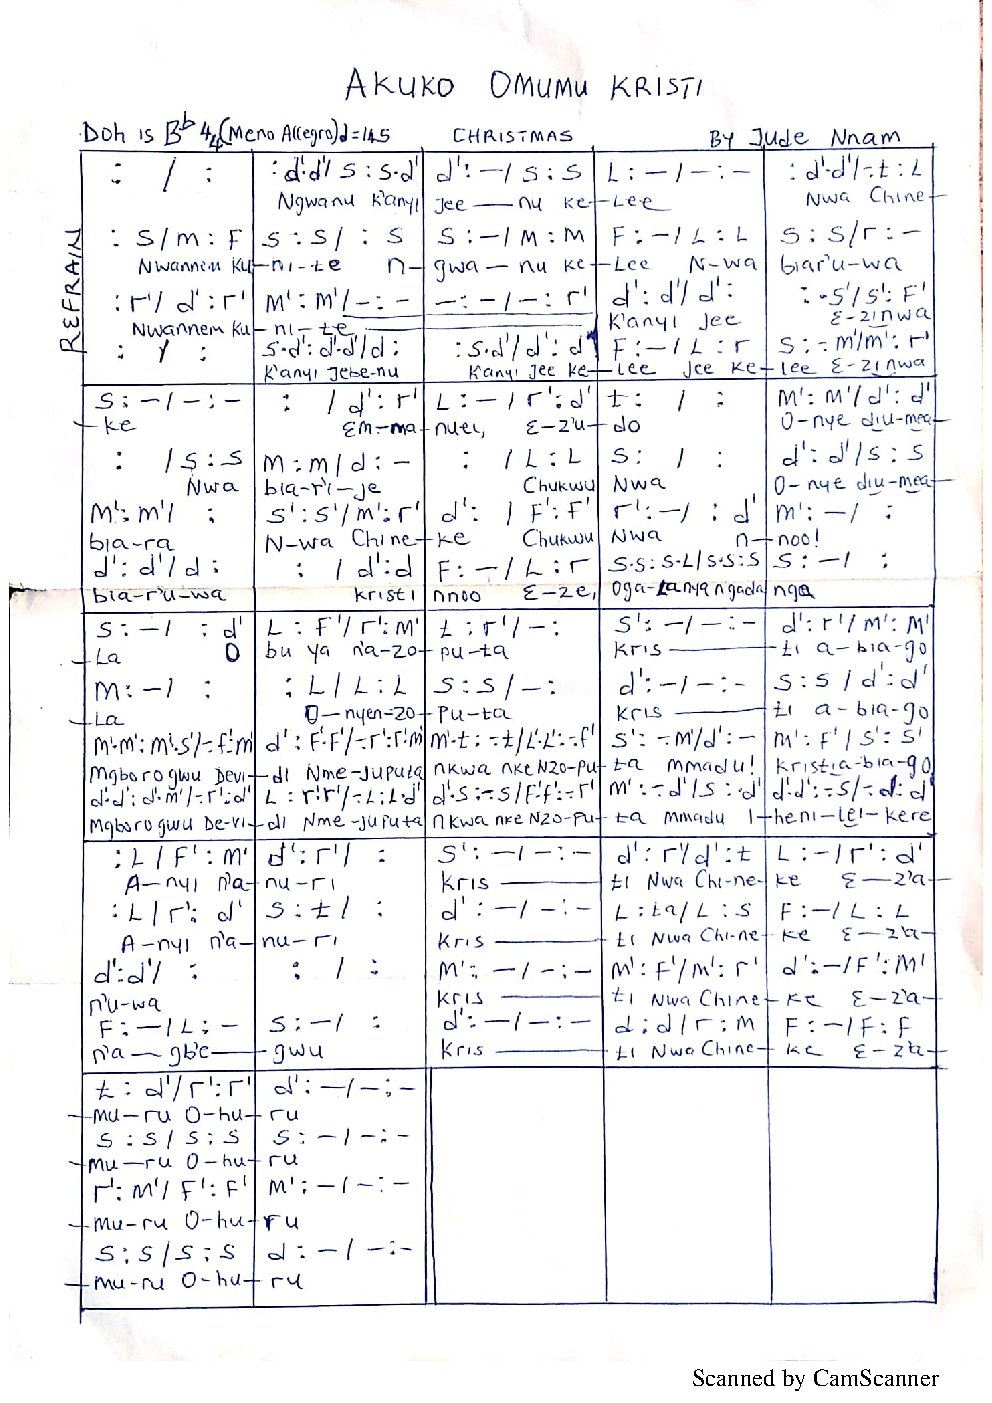 AKUKO OMUMU KRISTI
Doh is Bb 4/4 (Meno Allegro) d=145 CHRISTMAS BY Jude Nnam
REFRAIN
: / : | : d'.d'/ s : s.d' | d' : – / s : s | L : – / – : – | : d'.d'/-.t : L
Ngwanu K'anyi | Jee — nu ke – | Lee | Nwa Chine –
: s / m : F | s : s / : s | s : – / M : M | F : – / L : L | s : s / r : –
Nwannem Ku – | ni-te n – | gwa – nu ke – | Lee N-wa | biar'u-wa
: r' / d' : r' | M' : M' / – : – | – : – / – : r' | d' : d' / d' : | : -.s' / s' : F'
Nwannem Ku – | ni – te | K'anyi Jee | E-zinwa
: / : | s.d' : d'.d' / d : | : s.d' / d' : d' | F : – / L : r | s : -.m' / m' : r'
K'anyi Jebe-nu | K'anyi Jee ke – | lee Jee ke – | lee E-zi nwa
s : – / – : – | : / d' : r' | L : – / r' : d' | t : / : | M' : M' / d' : d'
– ke | Em-ma – | nuel, E-z'u – | do | O-nye diu-mea –
: / s : s | m : m / d : – | : / L : L | s : / : | d' : d' / s : s
Nwa | bia-r'i-je | Chukwu | Nwa | O-nye diu-mea –
M' : m' / : | s' : s' / m' : r' | d' : / F' : F' | r' : – / : d' | m' : – / :
bia-ra | N-wa Chine – | ke Chukwu | Nwa n – | noo!
d' : d' / d : | : / d' : d | F : – / L : r | s.s : s.L / s.s : s | s : – / :
bia-r'u-wa | Kristi | nnoo E-ze, | Oga-Lanya ngada | nga
s : – / : d' | L : F' / r' : M' | t : r' / – : | s' : – / – : – | d' : r' / M' : M'
– La O | bu ya n'a-zo – | pu-ta | Kris — | ti a-bia-go
M : – / : | : L / L : L | s : s / – : | d' : – / – : – | s : s / d' : d'
– La | O-nyen-zo – | Pu-ta | Kris — | ti a-bia-go
m'.m' : m'.s' / -.f' : m' | d' : F'.F' / -.r' : r'.m' | m'.t : -.t / L'.L' : -.f' | s' : -.M' / d' : – | M' : F' / s' : s'
Mgborogwu Devi – | di Nme-Juputa | nkwa nke Nzo-pu – | ta mmadu! | Kristia-bia-go
d'.d' : d'.m' / -.r' : d' | L : r'.r' / -.L : L.d' | d'.s : -.s / F'.f' : -.r' | M' : -.d' / s : d' | d'.d' : -.s / -.d : d'
Mgborogwu De-vi – | di Nme-Juputa | nkwa nke Nzo-pu – | ta mmadu I – | heni-lei-kere
: L / F' : M' | d' : r' / : | s' : – / – : – | d' : r' / d' : t | L : – / r' : d'
A-nyi n'a – | nu-ri | Kris — | ti Nwa Chi-ne – | ke E — z'a –
: L / r' : d' | s : t / : | d' : – / – : – | L : ta / L : s | F : – / L : L
A-nyi n'a – | nu-ri | Kris — | ti Nwa Chi-ne | ke E – z'a –
d' : d' / : | : / : | M' : – / – : – | M' : F' / m' : r' | d' : – / F' : M'
n'u-wa | Kris — | ti Nwa Chine – | ke E-z'a –
F : – / L : – | s : – / : | d' : – / – : – | d : d / r : m | F : – / F : f
n'a — gb'e — | gwu | Kris — | ti Nwa Chine – | ke E – z'a –
t : d' / r' : r' | d' : – / – : –
– mu-ru O-hu – | ru
s : s / s : s | s : – / – : –
– mu-ru O-hu – | ru
r' : M' / F' : F' | M' : – / – : –
– mu-ru O-hu – | ru
s : s / s : s | d : – / – : –
– mu-ru O-hu – | ru
Scanned by CamScanner